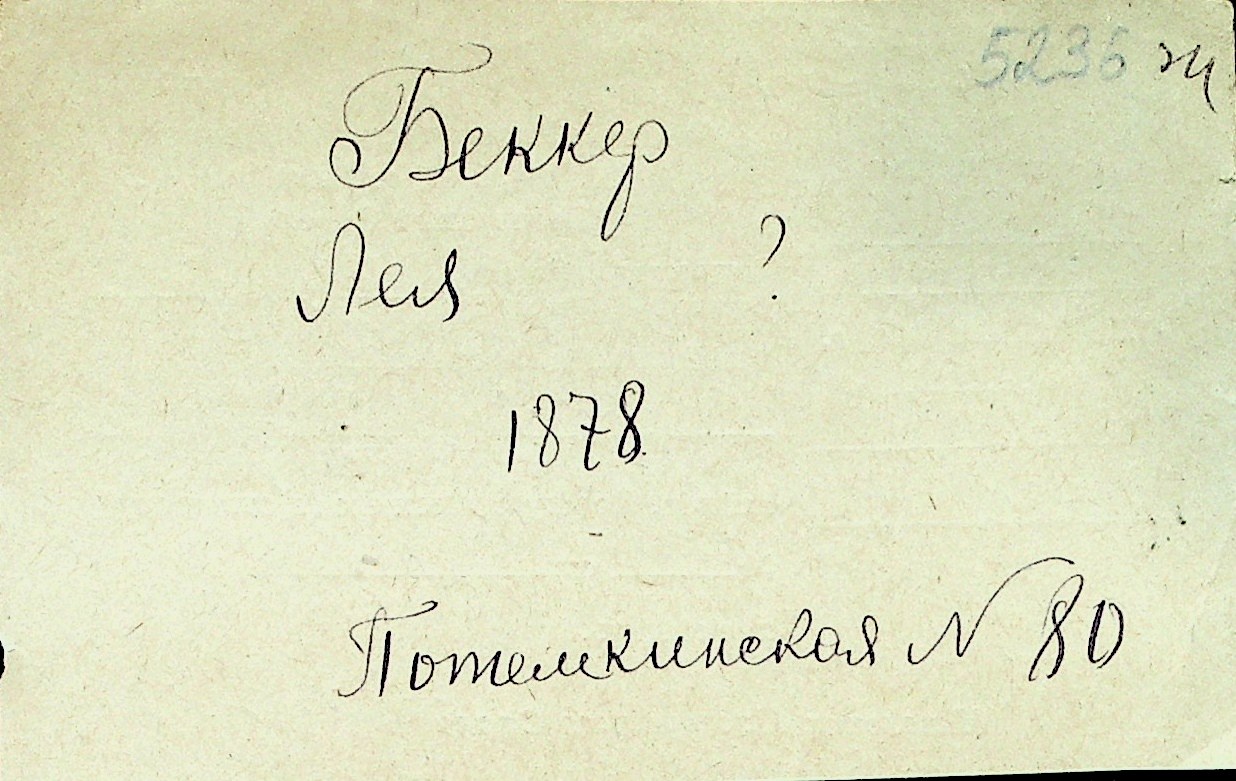 5236 ж
Беккер
Лея ?
1878
Потемкинская N 80